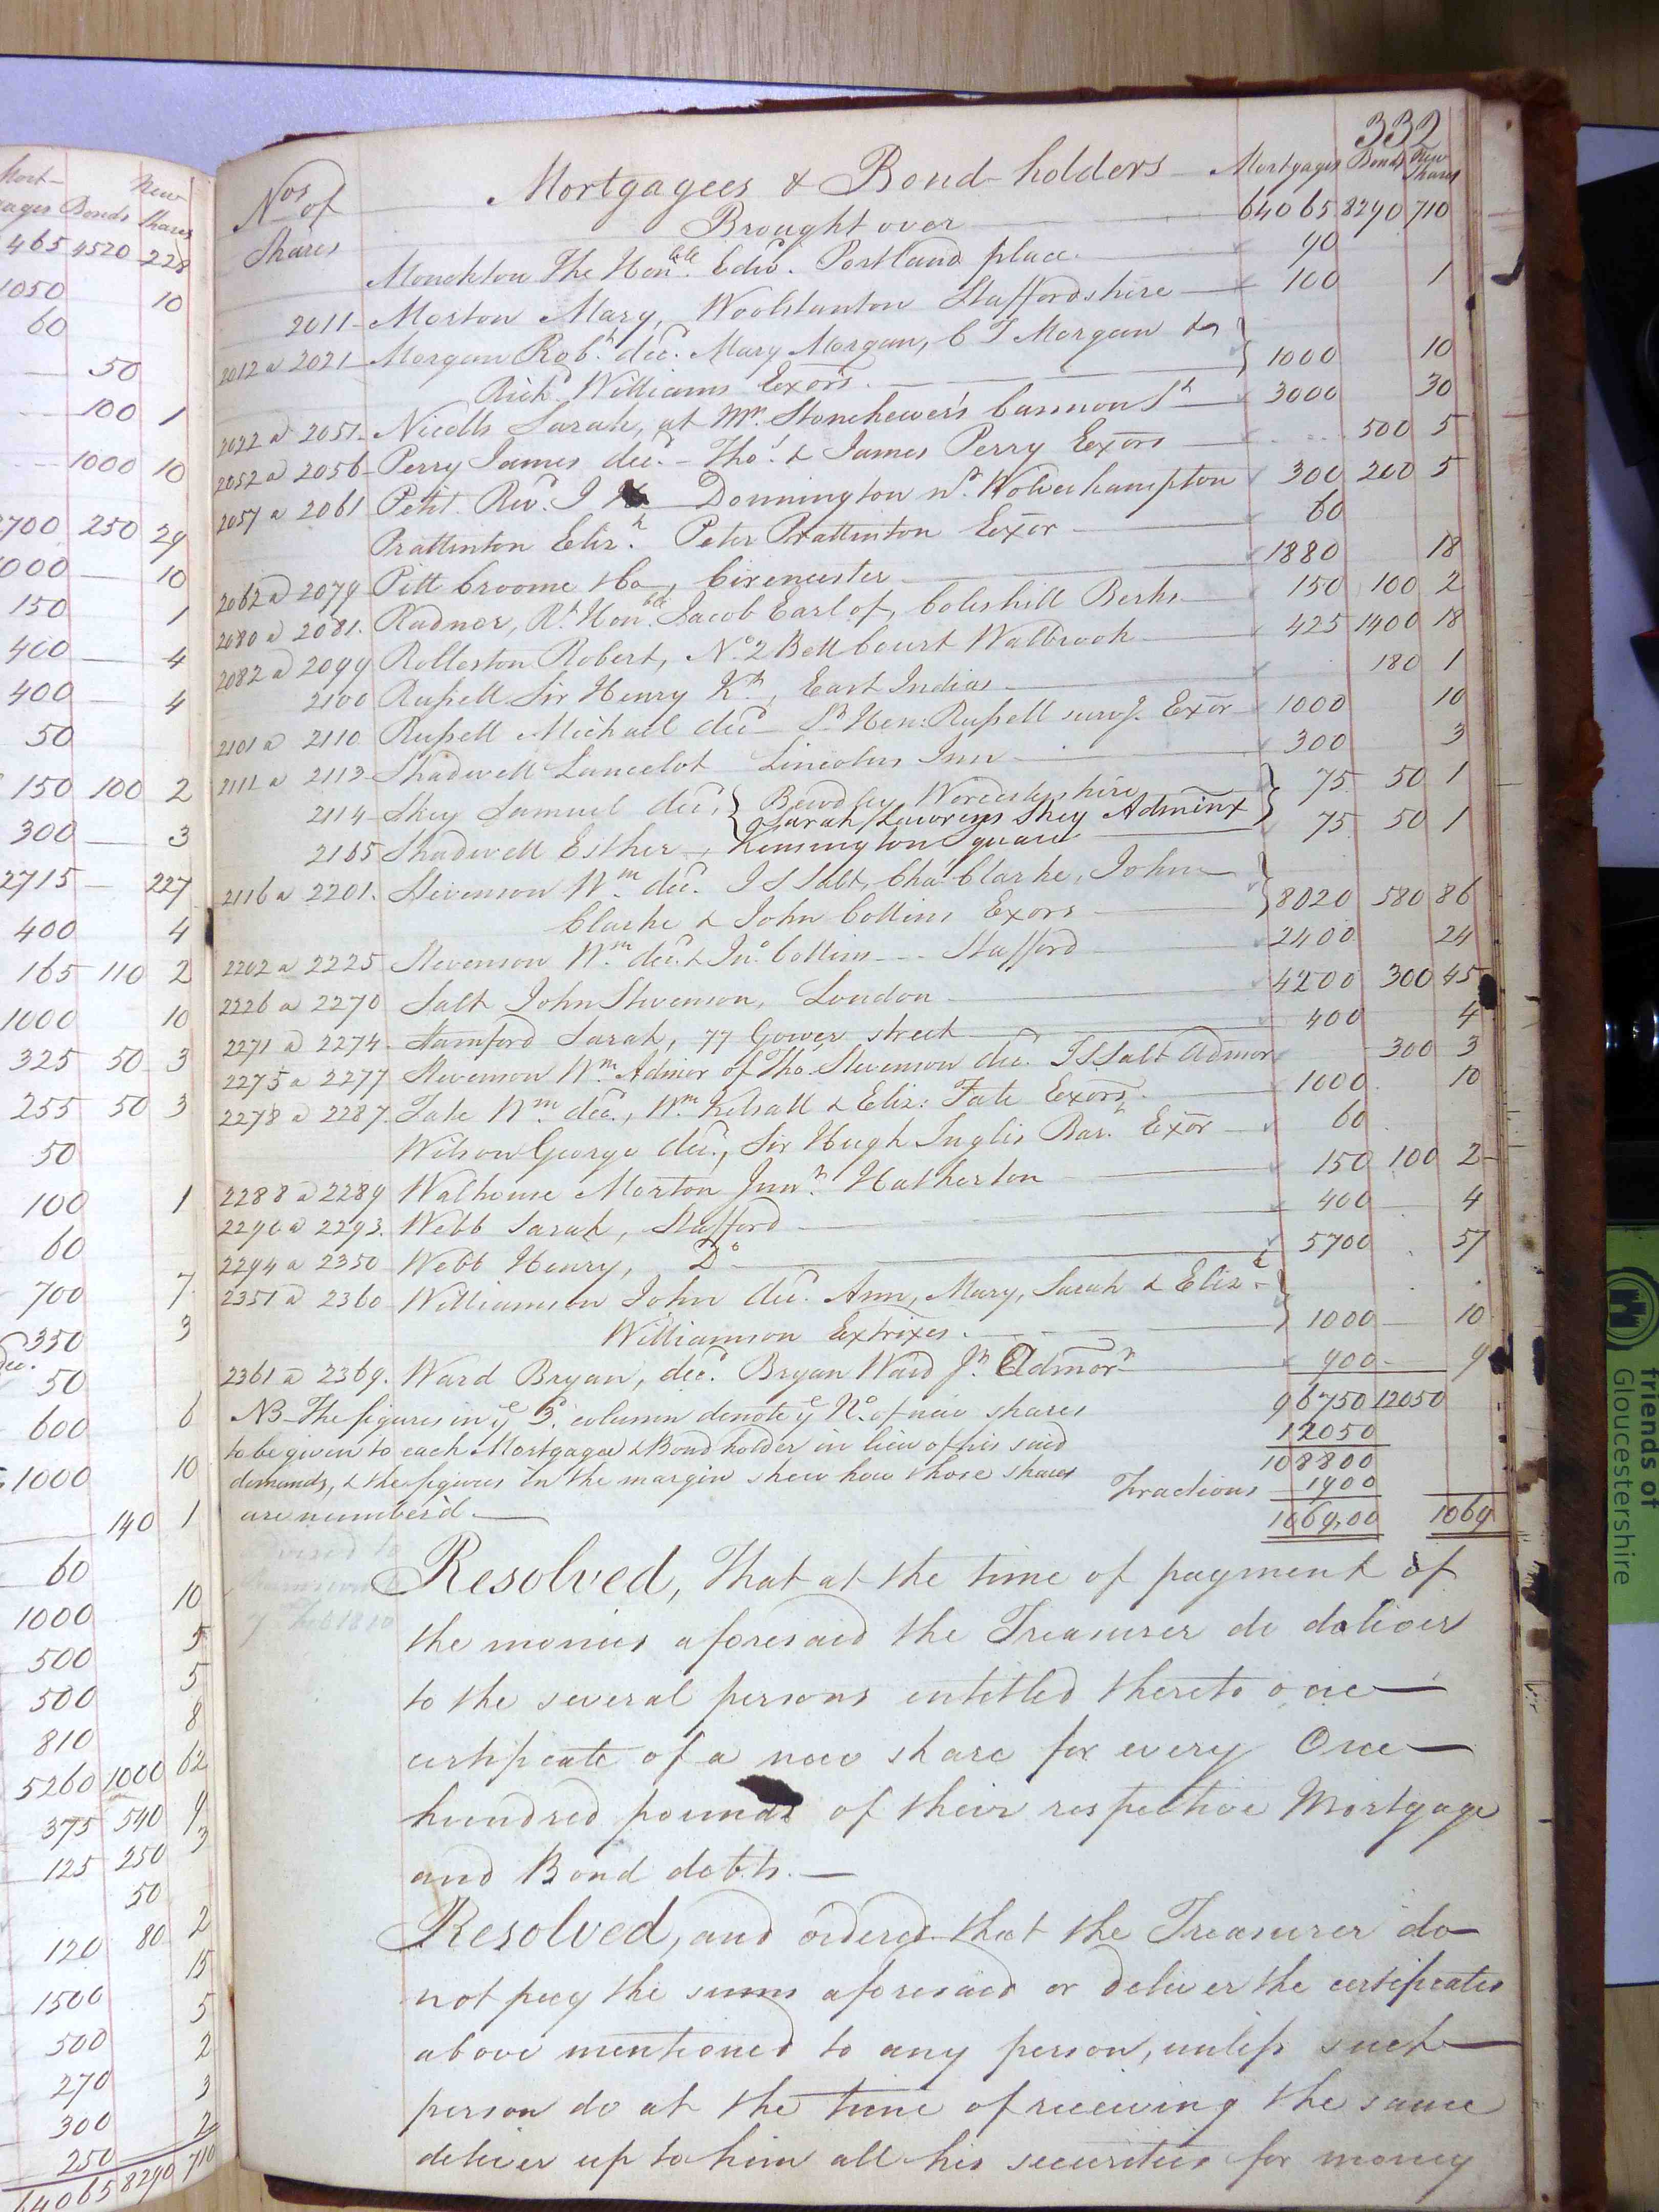 Mort- New
gages Bonds Shares
465 4520 228
1050 10
60
50
100 1
1000 10
2700 250 29
1000 10
150 1
400 4
400 4
50
150 100 2
300 3
2715 227
400 4
165 110 2
1000 10
325 50 3
255 50 3
50
100 1
60
700 7
350 3
50
600 6
1000 10
140 1
60
1000 10
500 5
500 5
810 8
5260 1000 62
375 540 9
125 250 3
50
120 80 2
1500 15
500 5
270 2
300 3
250 2
64065 8290 710
332
Nos of Shares Mortgagees & Bond-holders Mortgages Bonds New Shares
Brought over 64065 8290 710
Monckton The Honble Edwd. Portland place 90
2011 Morton Mary, Woolstanton Staffordshire 100 1
2012 a 2021 Morgan Robt. decd. Mary Morgan, C T Morgan &
Richd Williams Exors. 1000 10
2022 a 2051 Nicolls Sarah, at Mrs. Stonehewer's Cannon St 3000 30
2052 a 2056 Perry James decd. - Thos. & James Perry Exors 500 5
2057 a 2061 Petit Revd. J Donnington nr. Wolverhampton 300 200 5
Prattinton Elizh. Peter Prattinton Exor 60
2062 a 2079 Pitt Croome & Co, Cirencester 1880 18
2080 a 2081. Radnor, Rt. Honble. Jacob Earl of, Coleshill Berks 150 100 2
2082 a 2099 Rolleston Robert, No. 2 Bell Court Walbrook 425 1400 18
2100 Russell Sir Henry Kt, East Indias 180 1
2101 a 2110 Russell Michael decd Sr. Hen: Russell survg. Exor 1000 10
2111 a 2113 Shadwell Lancelot Lincolns Inn 300 3
2114 Skey Samuel decd. { Bewdley Worcestershire 75 50 1
Sarah Skey Adminx }
2165 Shadwell Esther, Kensington Square 75 50 1
2116 a 2201. Stevenson Wm. decd. J S Salt, Chas. Clarke, John
Clarke & John Collins Exors 8020 580 86
2202 a 2225 Stevenson Wm. decd. & Jno. Collins - - - Stafford 2400 24
2226 a 2270 Salt John Stevenson, London 4200 300 45
2271 a 2274 Stamford Sarah, 77 Gower street 400 4
2275 a 2277 Stevenson Wm. Admor of Thos. Stevenson decd. J S Salt Admor 300 3
2278 a 2287. Tate Wm decd., Wm. Kelsall & Eliz: Tate Exors. 1000 10
Wilson George decd., Sir Hugh Inglis Bart. Exor 60
2288 a 2289 Walhouse Morton Junr. Hatherton 150 100 2
2290 a 2293. Webb Sarah, Stafford 400 4
2294 a 2350 Webb Henry, Do 5700 57
2351 a 2360 Williamson John decd. Ann, Mary, Sarah & Elizth
Williamson Extrixes. 1000 10
2361 a 2369. Ward Bryan, decd. Bryan Ward Jr. Admor 900 9
NB The figures in ye 3d. column denote ye No. of new shares 96750 12050
to be given to each Mortgagee & Bond holder in lieu of his said 12050
demands, & the figures in the margin shew how those shares 108800
are number'd Fractions 1900
1069,00 1069
Resolved, That at the time of payment of
the monies aforesaid the Treasurer do deliver
to the several persons entitled thereto one
certificate of a new share for every One
hundred pounds of their respective Mortgage
and Bond debts.
Resolved, and ordered that the Treasurer do
not pay the sums aforesaid or deliver the certificates
above mentioned to any person, unless such
person do at the time of receiving the same
deliver up to him all his securities for money
friends of
Gloucestershire